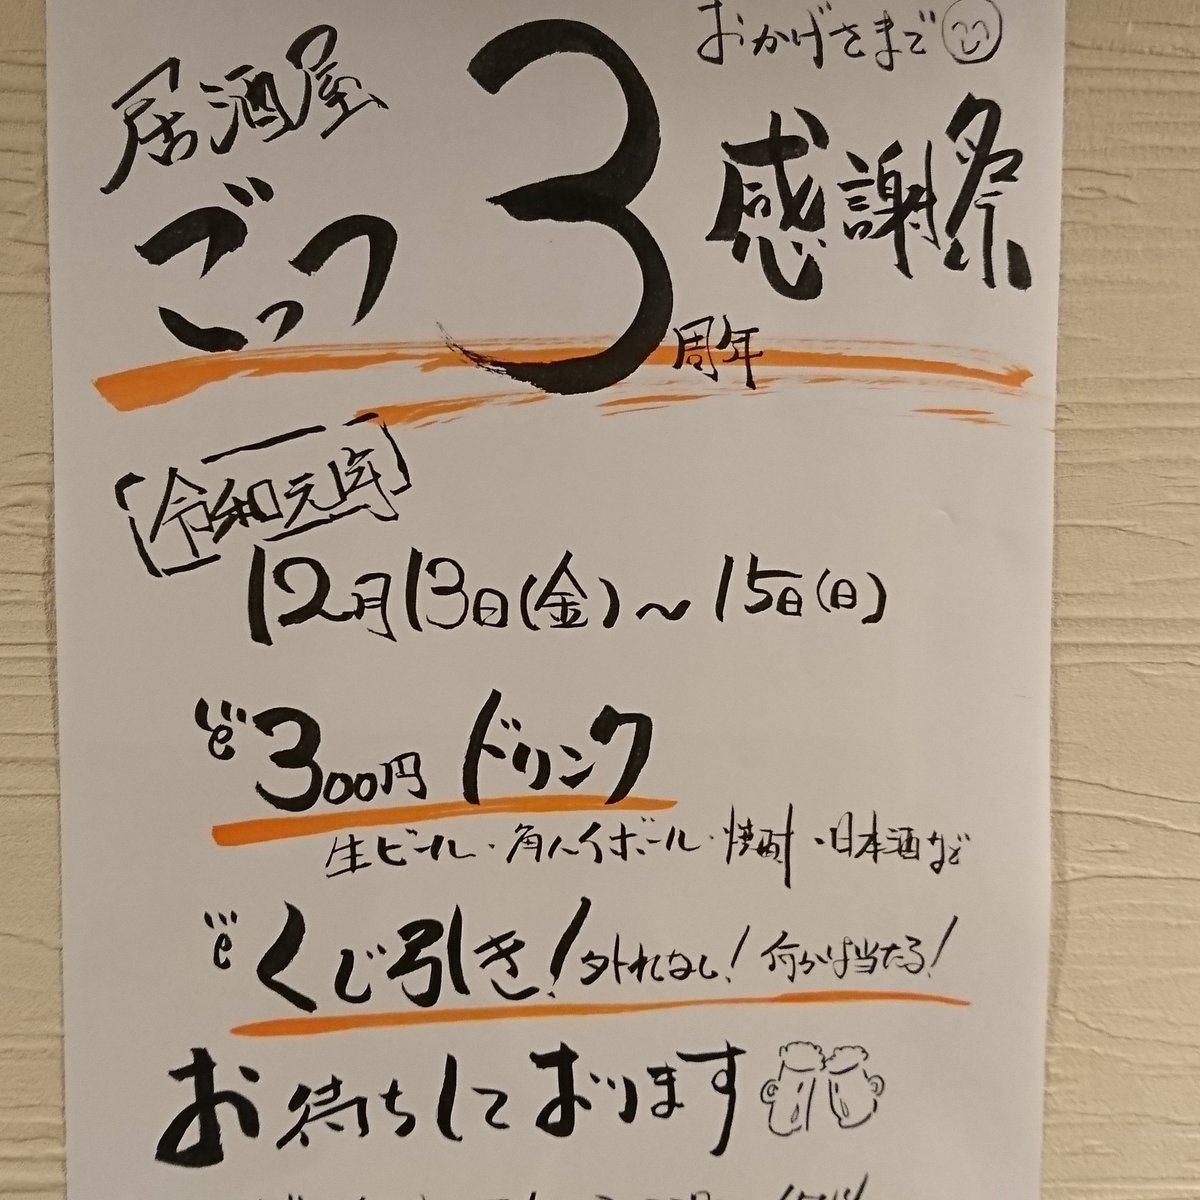 おかげさまで
居酒屋
ごっつ
3周年
感謝祭
令和元年
12月13日(金)～15日(日)
300円ドリンク
生ビール・角ハイボール・焼酎・日本酒など
くじ引き!外れなし!何かは当たる!
お待ちしております